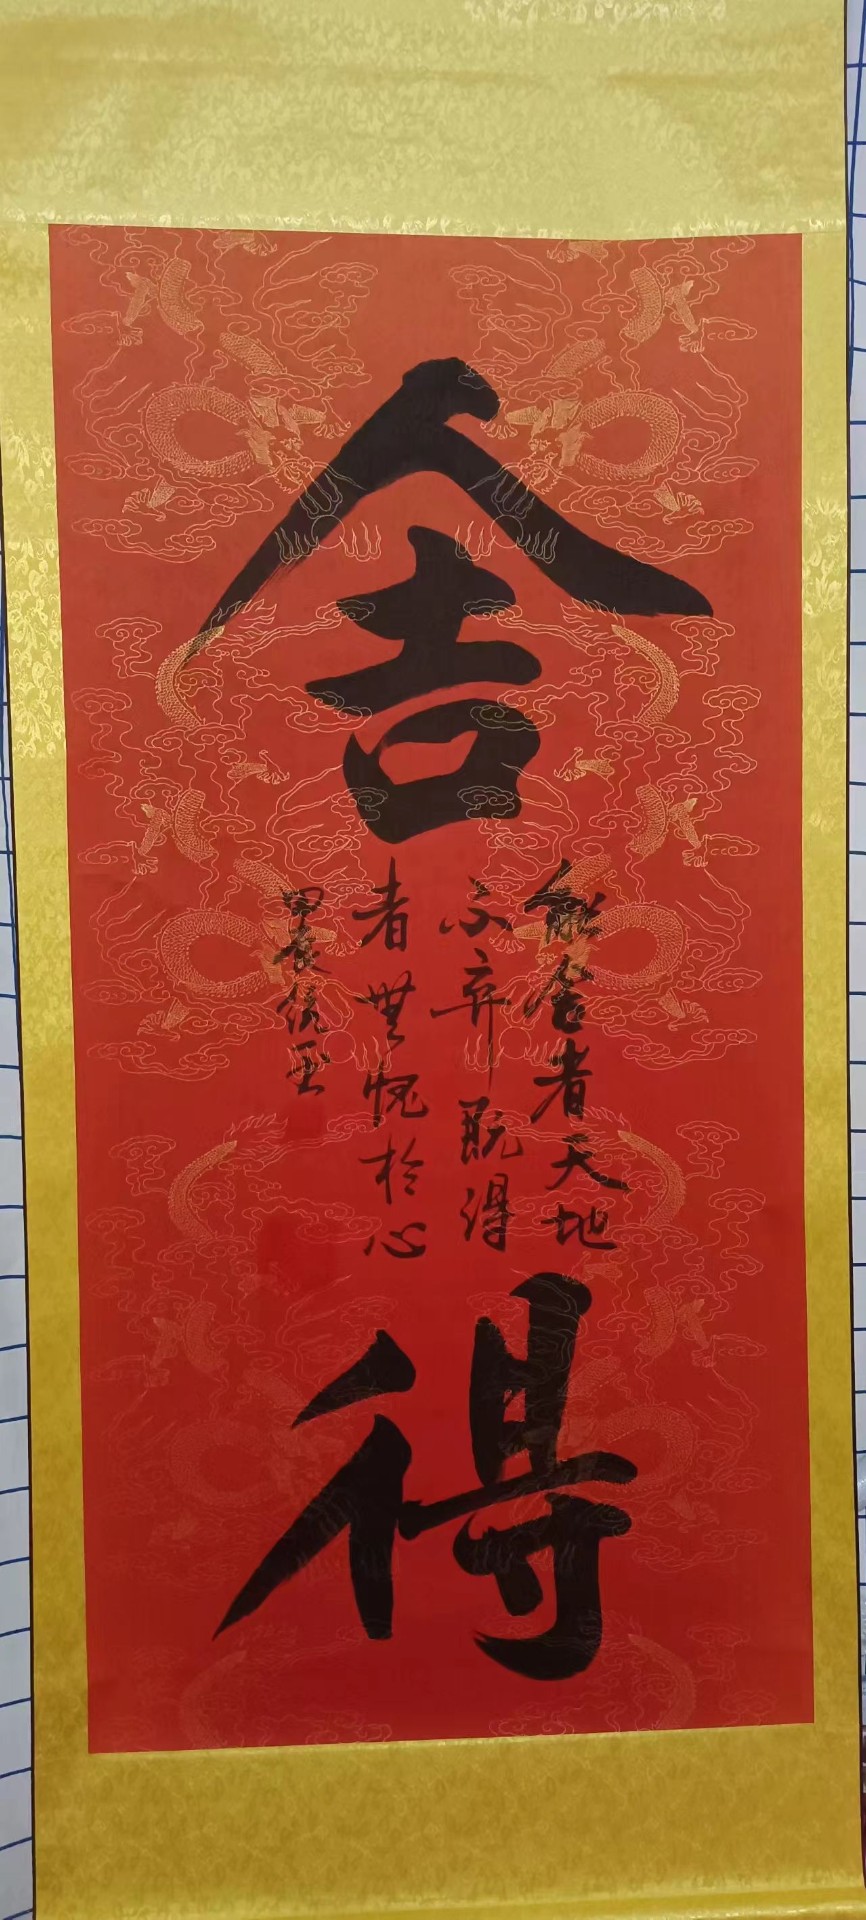 舍得
能舍者天地
不弃既得
者無愧於心
甲辰